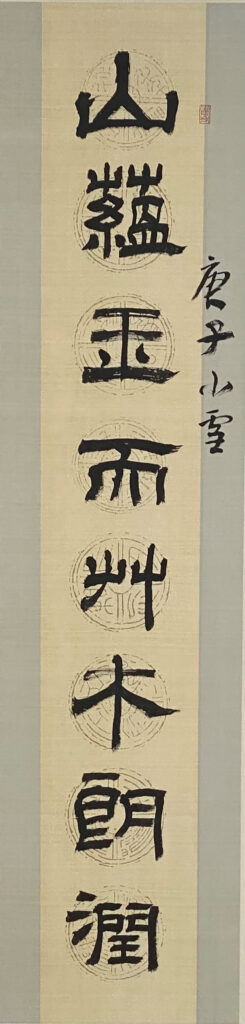 山蘊玉而艸木朗潤
庚子小雪